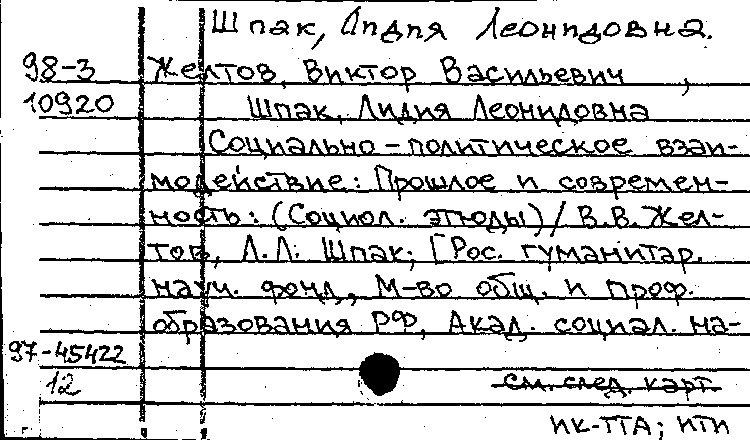 Шпак, Лидия Леонидовна.
98-3 Желтов, Виктор Васильевич,
10920 Шпак, Лидия Леонидовна
Социально-политическое взаи-
модействие: Прошлое и современ-
ность: (Социол. этюды) / В.В. Жел-
тов, Л.Л. Шпак; [Рос. гуманитар.
науч. фонд, М-во общ. и проф.
образования РФ, Акад. социал. на-
97-45422
12 см. след. карт.
ИК-ТТА; ИТИ